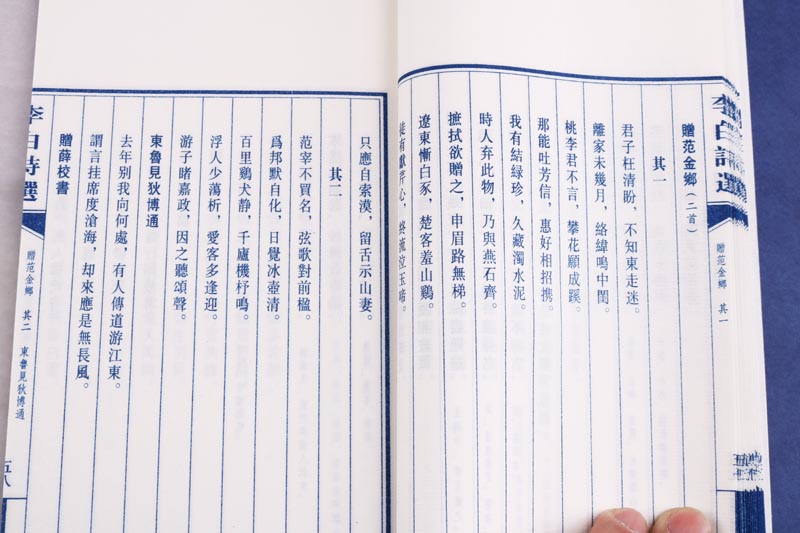 贈范金鄉（二首）
其一
君子枉清盼，不知東走迷。
離家未幾月，絡緯鳴中閨。
桃李君不言，攀花願成蹊。
那能吐芳信，惠好相招携。
我有結緑珍，久藏濁水泥。
時人弃此物，乃與燕石齊。
摭拭欲贈之，申眉路無梯。
遼東慚白豕，楚客羞山鷄。
徒有獻芹心，終流泣玉啼。
贈范金鄉 其一
只應自索漠，留舌示山妻。
其二
范宰不買名，弦歌對前楹。
爲邦默自化，日覺冰壺清。
百里鷄犬静，千廬機杼鳴。
浮人少蕩析，愛客多逢迎。
游子睹嘉政，因之聽頌聲。
東魯見狄博通
去年别我向何處，有人傳道游江東。
謂言挂席度滄海，却來應是無長風。
贈薛校書
李白詩選
贈范金鄉 其二 東魯見狄博通
五八